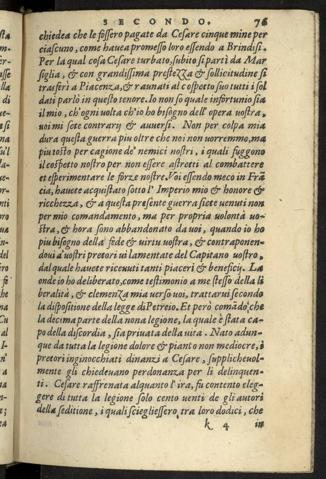 SECONDO. 76
chiedea che le fossero pagate da Cesare cinque mine per
ciascuno, come hauea promesso loro essendo a Brindisi.
Per la qual cosa Cesare turbato, subito si partì da Mar
siglia, & con grandissima prestezza & sollicitudine si
trasferì a Piacenza, & raunati al cospetto suo tutti i sol
dati parlò in questo tenore. Io non so quale infortunio sia
il mio, ch'ogni uolta ch'io ho bisogno dell'opera uostra,
uoi mi sete contrary & auuersi. Non per colpa mia
dura questa guerra piu oltre che noi non uorremmo, ma
piu tosto per cagione de' nemici nostri, i quali fuggono
il cospetto nostro per non essere astretti al combattere
et esperimentare le forze nostre. Voi essendo meco in Frã
cia, hauete acquistato sotto l'Imperio mio & honore &
ricchezza, & a questa presente guerra siete uenuti non
per mio comandamento, ma per propria uolontà uo-
stra, & hora sono abbandonato da uoi, quando io ho
piu bisogno della fede & uirtu uostra, & contraponen-
doui a uostri pretori ui lamentate del Capitano uostro,
dal quale hauete riceuuti tanti piaceri & beneficij. La
onde io ho deliberato, come testimonio a me stesso della li
beralità, & clemenza mia uerso uoi, trattarui secondo
la dispositione della legge di Petreio. Et però comãdo che
la decima parte della nona legione, la quale è stata ca-
po della discordia, sia priuata della uita. Nato adun-
que da tutta la legione dolore & pianto non mediocre, i
pretori inginocchiati dinanzi a Cesare, supplicheuol-
mente gli chiedeuano perdonanza per li delinquen-
ti. Cesare raffrenata alquanto l'ira, fu contento eleg-
gere di tutta la legione solo cento uenti de gli autori
della seditione, i quali sciegliessero, tra loro dodici, che
k 4 in